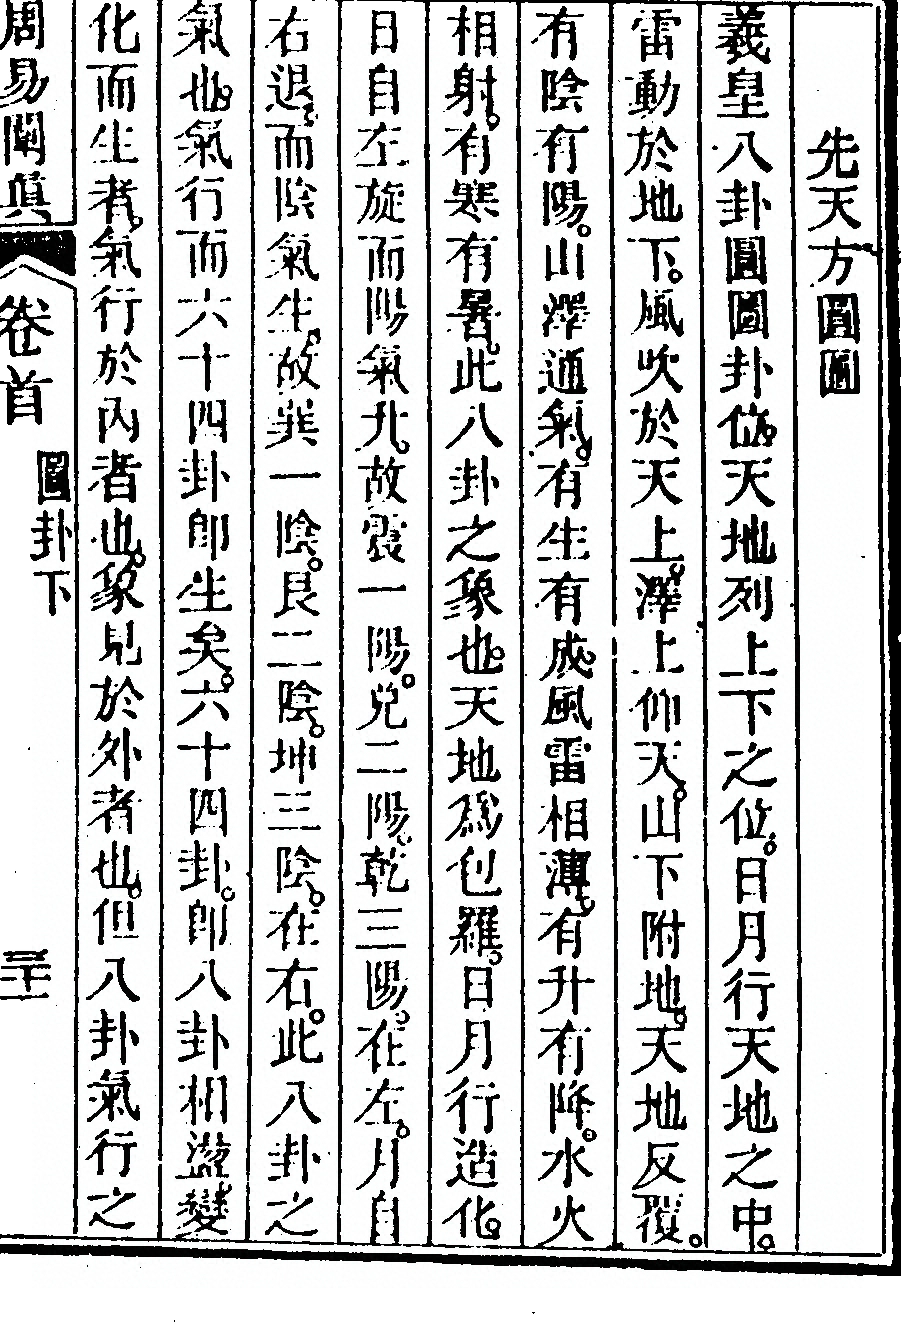 先天方圓圖
羲皇八卦圓圖卦位天地列上下之位。日月行天地之中。
雷動於地下。風吹於天上。澤上仰天。山下附地。天地反覆。
有陰有陽。山澤通氣。有生有成。風雷相薄。有升有降。水火
相射。有寒有暑。此八卦之象也。天地爲包羅。日月行造化。
日自左旋而陽氣升。故震一陽。兌二陽。乾三陽。在左。月自
右退。而陰氣生。故巽一陰。艮二陰。坤三陰。在右。此八卦之
氣也。氣行而六十四卦卽生矣。六十四卦。卽八卦相盪變
化而生者。氣行於內者也。象見於外者也。但八卦氣行之
周易闡眞
卷首
圖卦下
三十